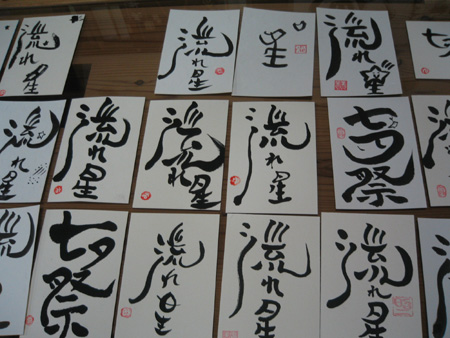 流れ星
流れ星
星
流れ星
七
流れ星
流れ星
流れ星
流れ星
七夕祭
流
七夕祭
流れ星
流れ星
流れ星